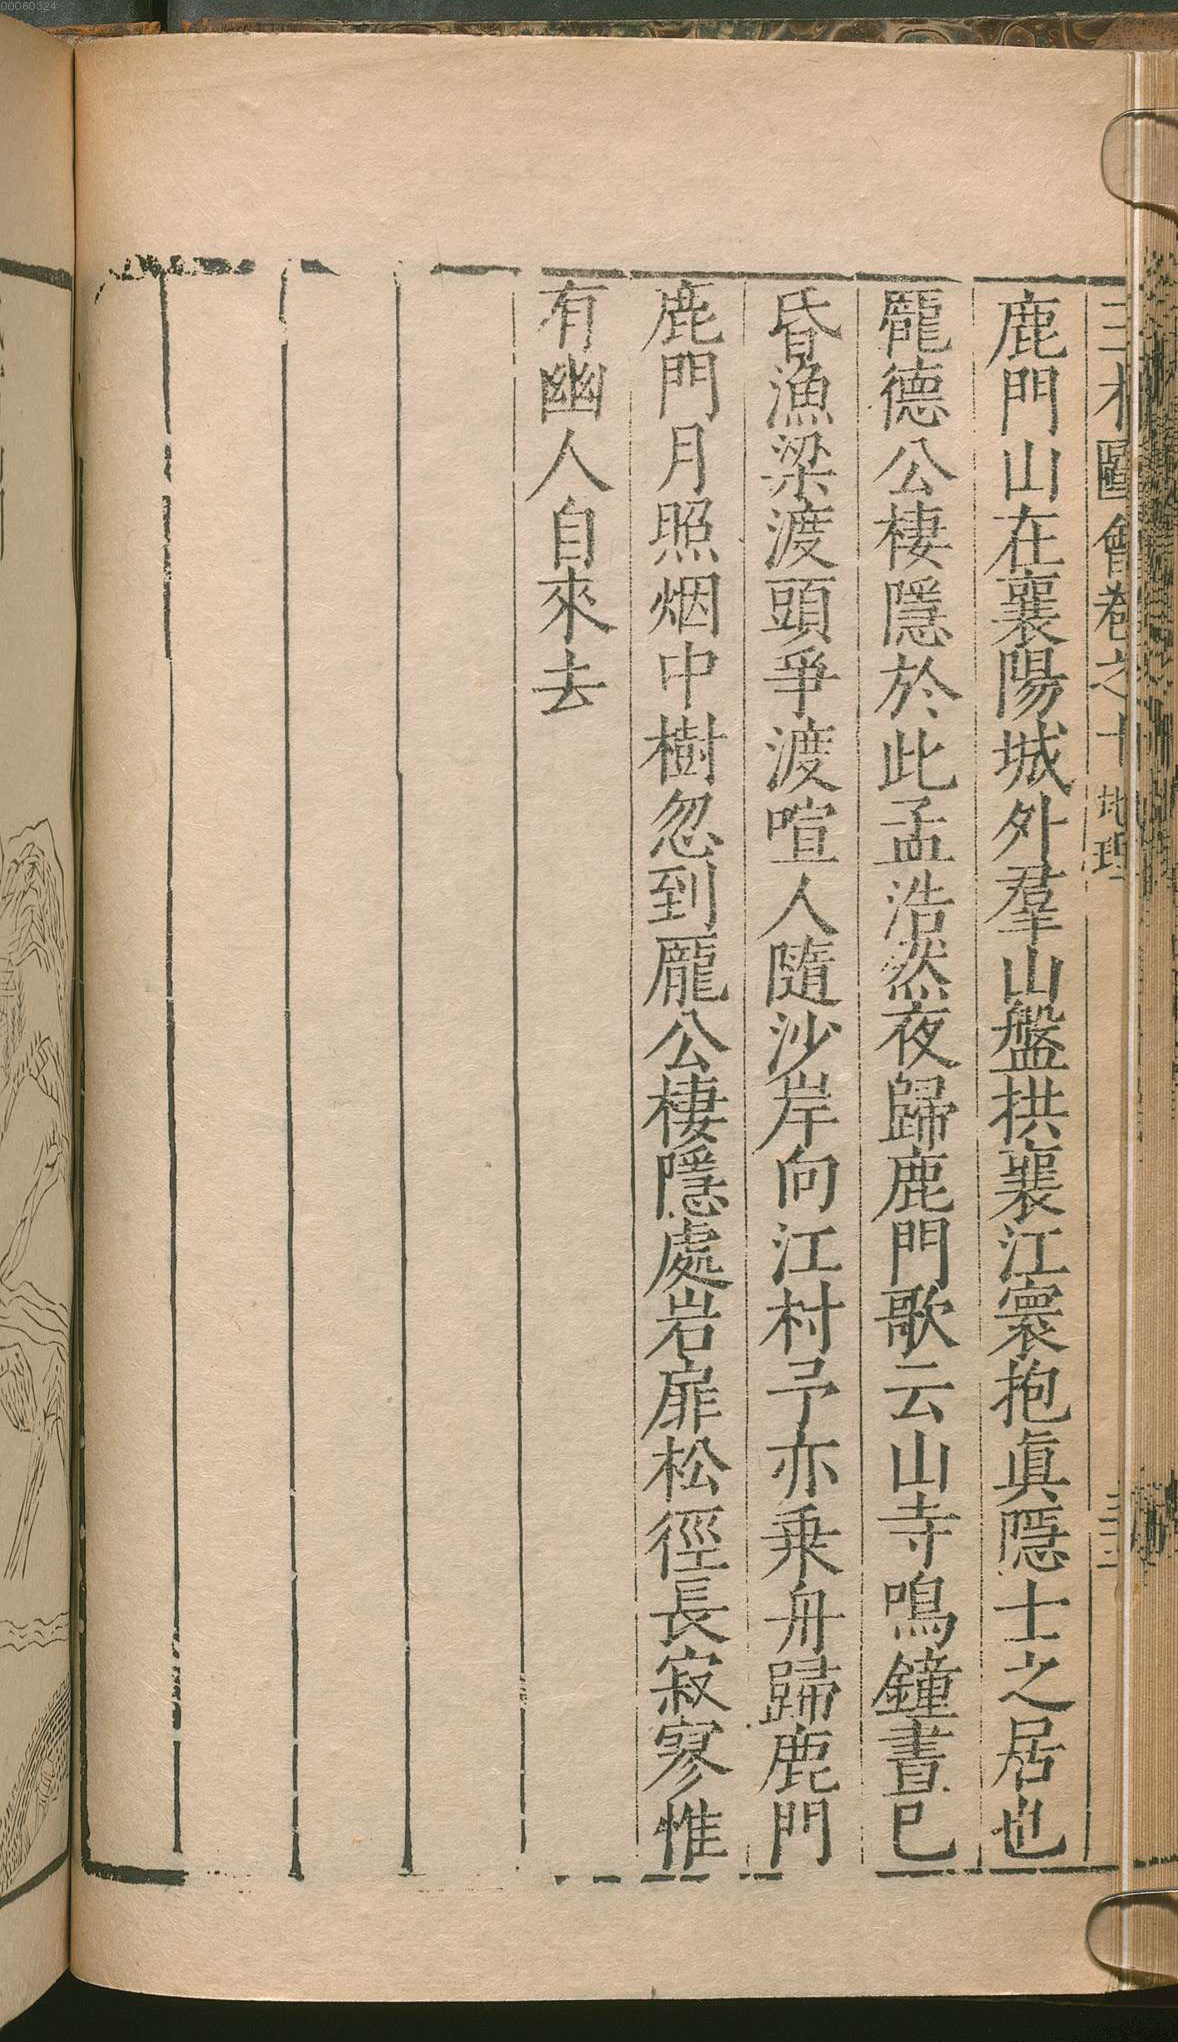 三才圖會卷之十 地理 三三
鹿門山在襄陽城外羣山盤拱襄江寰抱眞隱士之居也
龎德公棲隱於此孟浩然夜歸鹿門歌云山寺鳴鐘晝已
昏漁梁渡頭爭渡喧人隨沙岸向江村予亦乗舟歸鹿門
鹿門月照烟中樹忽到龐公棲隱處岩扉松徑長寂寥惟
有幽人自來去
00060324